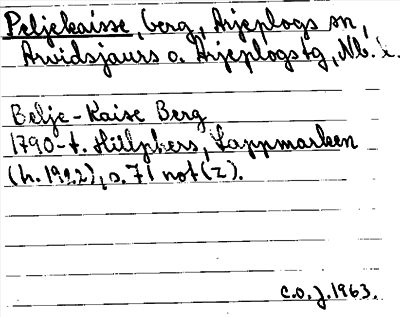 Peljekaisse, berg, Arjeplogs sn,
Arvidsjaurs o. Arjeplogs tg, Nb. l.
Belje-Kaise Berg
1790-t. Hülphers, Lappmarken
(h. 1922), s. 71 not (z).
C.O.J. 1963.